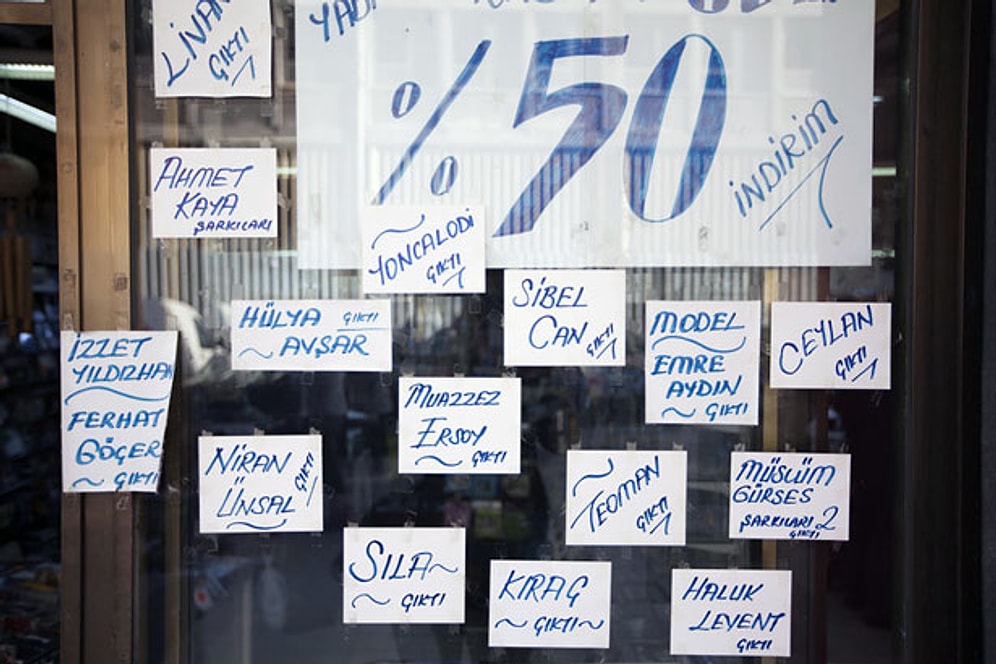 LİVANELİ
ÇIKTI
% 50
İNDİRİM
AHMET
KAYA
ŞARKILARI
YONCALODİ
ÇIKTI
HÜLYA ÇIKTI
AVŞAR
SİBEL
CAN ÇIKTI
MODEL
EMRE
AYDIN
ÇIKTI
CEYLAN
ÇIKTI
İZZET
YILDIZHAN
FERHAT
GÖÇER
ÇIKTI
MUAZZEZ
ERSOY
ÇIKTI
NİRAN
ÜNSAL
ÇIKTI
TEOMAN
ÇIKTI
MÜSLÜM
GÜRSES
ŞARKILARI 2
ÇIKTI
SILA
ÇIKTI
KIRAÇ
ÇIKTI
HALUK
LEVENT
ÇIKTI